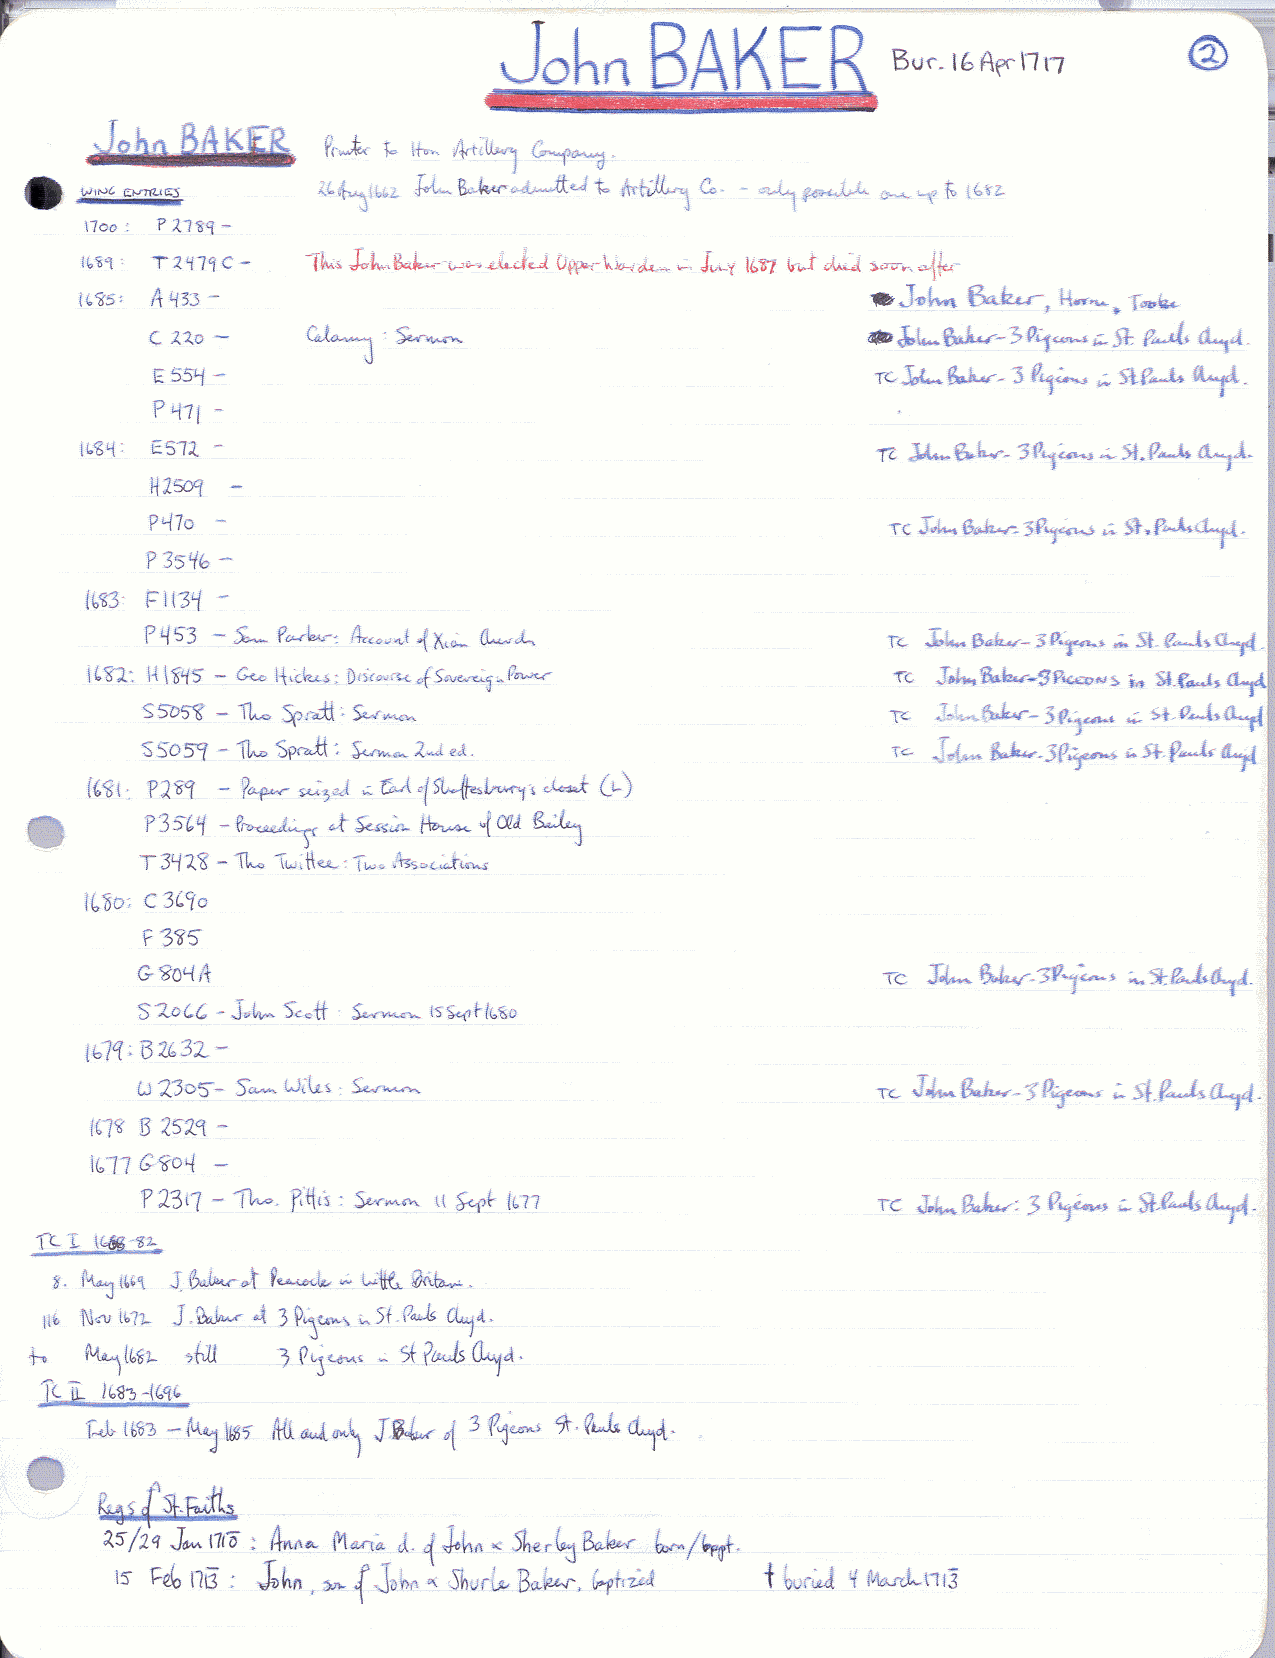 John BAKER Bur. 16 Apr 1717 2
John BAKER Printer to Hon Artillery Company.
WING ENTRIES 26 Aug 1662 John Baker admitted to Artillery Co. - only possible one up to 1682
1700: P 2789 -
1689: T 2479C - This John Baker was elected Upper Warden in July 1687 but died soon after
1685: A 433 - John Baker, Horne, Tooke
C 220 - Calamy: Sermon John Baker - 3 Pigeons in St. Pauls Chyd.
E 554 - TC John Baker - 3 Pigeons in St Pauls Chyd.
P 471 -
1684: E572 - TC John Baker - 3 Pigeons in St. Pauls Chyd.
H2509 -
P470 - TC John Baker - 3 Pigeons in St. Pauls Chyd.
P 3546 -
1683: F1134 -
P453 - Sam Parker: Account of Xian Church TC John Baker - 3 Pigeons in St. Pauls Chyd.
1682: H1845 - Geo Hickes: Discourse of Sovereign Power TC John Baker - 3 PIGEONS in St. Pauls Chyd
S5058 - Tho Spratt: Sermon TC John Baker - 3 Pigeons in St. Pauls Chyd
S5059 - Tho Spratt: Sermon 2nd ed. TC John Baker - 3 Pigeons in St. Pauls Chyd
1681: P289 - Paper seized in Earl of Shaftesbury's closet (L)
P3564 - Proceedings at Session House of Old Bailey
T 3428 - Tho Twittee: Two Associations
1680: C 3690
F 385
G 804A TC John Baker - 3 Pigeons in St. Pauls Chyd.
S 2066 - John Scott: Sermon 15 Sept 1680
1679: B 2632 -
W 2305 - Sam Wiles: Sermon TC John Baker - 3 Pigeons in St. Pauls Chyd.
1678 B 2529 -
1677 G804 -
P 2317 - Tho. Pittis: Sermon 11 Sept 1677 TC John Baker: 3 Pigeons in St. Pauls Chyd.
TC I 1668-82
8. May 1669 J. Baker at Peacock in Little Britain.
116 Nov 1672 J. Baker at 3 Pigeons in St. Pauls Chyd.
to May 1682 still 3 Pigeons in St Pauls Chyd.
TC II 1683-1696
Feb 1683 - May 1685 All and only J Baker of 3 Pigeons St. Pauls Chyd.
Regs of St. Faiths
25/29 Jan 1710 : Anna Maria d. of John & Sherley Baker born/bapt.
15 Feb 1713 : John, son of John & Shurle Baker, baptized † buried 4 March 1713